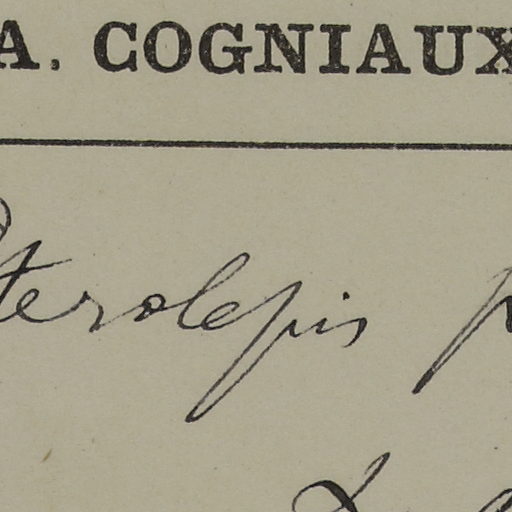 A. COGNIAUX
Pterolepis p